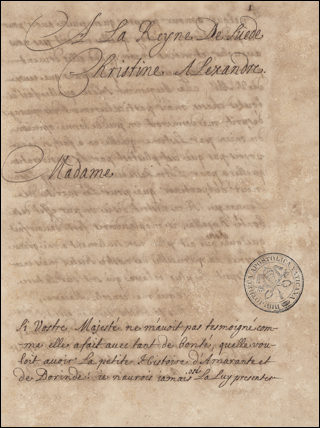 A La Reyne De Suede
Kristine Alexandre
Madame
Si Vostre Majesté ne m'auoit pas tesmoigné com-
me elle a fait auec tant de bonté, quelle vou-
loit auoir La petite Histoire d'Amarante et
de Dorinde: ie n'aurois iamais osé La Luy presenter
BIBLIOTHECA APOSTOLICA VATICANA